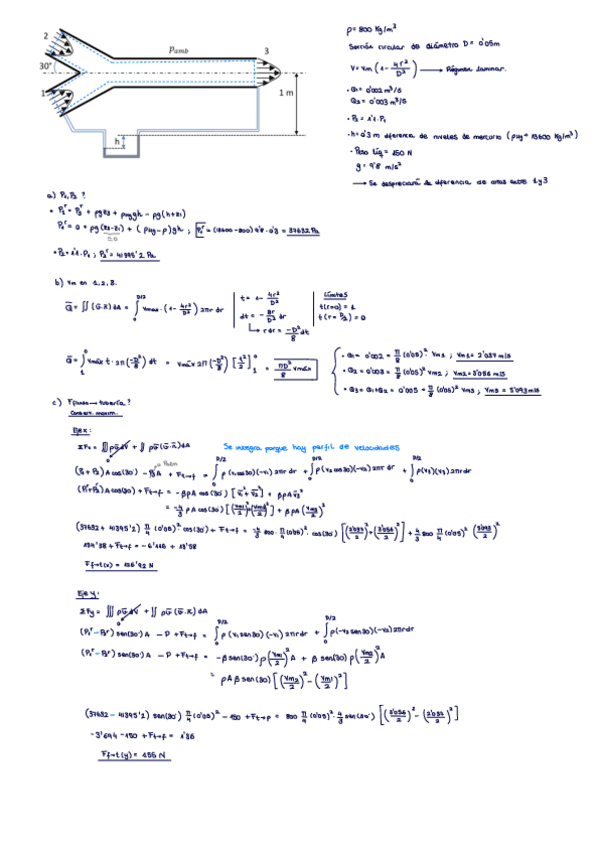 2
P_amb
3
30°
1
1 m
h
ρ = 800 Kg/m³
Sección circular de diámetro D = 0'05m
V = Vm (1 - 4r²/D²) → Régimen laminar.
· Q1 = 0'002 m³/s
Q2 = 0'003 m³/s
· P2 = 1'1·P1
· h = 0'3 m diferencia de niveles de mercurio (ρHg = 13600 Kg/m³)
· Peso líq = 150 N
g = 9'8 m/s²
→ Se despreciará la diferencia de cotas entre 1 y 3
a) P1, P2 ?
P1ʳ = P3ʳ + ρgz3 + ρHg gh - ρg(h+z1)
P1ʳ = 0 + ρg(z3-z1) + (ρHg-ρ)gh ; P1ʳ = (13600-800) 9'8·0'3 = 37632 Pa
· P2 = 1'1·P1 ; P2ʳ = 41395'2 Pa
b) Vm en 1, 2, 3.
Q = ∬ (v·n) dA = ∫₀^(D/2) Vmax·(1 - 4r²/D²) 2πr dr
t = 1 - 4r²/D²
dt = -8r/D² dr
→ r dr = -D²/8 dt
Límites
t(r=0) = 1
t(r=D/2) = 0
Q = ∫₁⁰ Vmáx t·2π(-D²/8) dt = Vmáx 2π(-D²/8) [t²/2]₁⁰ = πD²/8 Vmáx
· Q1 = 0'002 = π/8 (0'05)² Vm1 ; Vm1 = 2'037 m/s
· Q2 = 0'003 = π/8 (0'05)² Vm2 ; Vm2 = 3'056 m/s
· Q3 = Q1+Q2 = 0'005 = π/8 (0'05)² Vm3 ; Vm3 = 5'093 m/s
c) F fluido → tubería ?
Conserv. momen.
Eje x:
ΣFx = ∭ ρv dV + ∬ ρv (v·n) dA
0
Se integra porque hay perfil de velocidades
(P1+P2) A cos(30°) - P3A + Ft→f = ∫₀^(D/2) ρ(v1cos30)(-v1)2πr dr + ∫₀^(D/2) ρ(v2cos30)(-v2)2πr dr + ∫₀^(D/2) ρ(v3)(v3)2πr dr
(P1ʳ+P2ʳ) A cos(30) + Ft→f = -βρA cos(30°) [v1² + v2²] + βρA v3²
= -4/3 ρA cos(30°) [(Vm1/2)²+(Vm2/2)²] + βρA (Vm3/2)²
(37632 + 41395'2) π/4 (0'05)²·cos(30°) + Ft→f = -4/3 800·π/4 (0'05)²·cos(30°) [(2'037/2)²+(3'056/2)²] + 4/3 800 π/4 (0'05)² (5'093/2)²
134'38 + Ft→f = -6'116 + 13'58
Ff→t(x) = 126'92 N
Eje y:
ΣFy = ∭ ρv dV + ∬ ρv (v·n) dA
0
(P1ʳ-P2ʳ) sen(30°) A - P + Ft→f = ∫₀^(D/2) ρ(v1sen30)(-v1)2πr dr + ∫₀^(D/2) ρ(-v2sen30)(-v2)2πr dr
(P1ʳ-P2ʳ) sen(30°) A - P + Ft→f = -β sen(30°) ρ(Vm1/2)² A + β sen(30) ρ(Vm2/2)² A
= ρAβ sen(30) [(Vm2/2)² - (Vm1/2)²]
(37632 - 41395'2) sen(30°) π/4 (0'05)² - 150 + Ft→f = 800 π/4 (0'05)²·4/3 sen(30°) [(3'056/2)² - (2'037/2)²]
-3'694 - 150 + Ft→f = 1'36
Ff→t(y) = 155 N